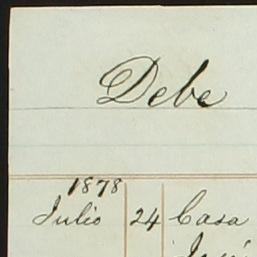 Debe
1878
Julio 24 Casa